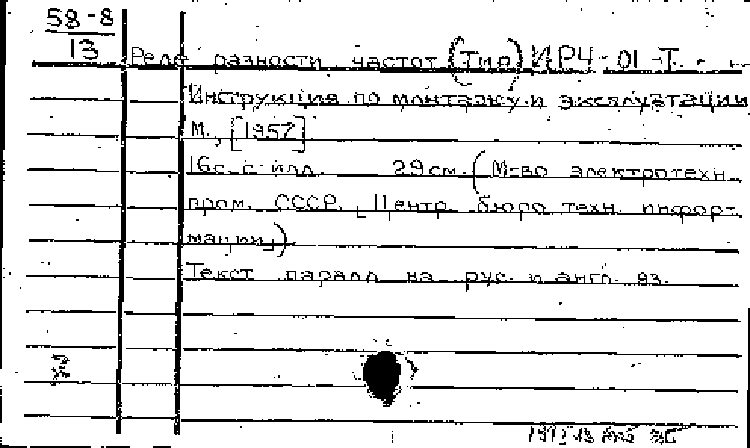 58-8
13
Реле разности частот (тип) ИРЧ-01-Т.
Инструкция по монтажу и эксплуатации
М., [1957]
16с. с илл. 29 см. (М-во электротехн.
пром. СССР. Центр. бюро техн. инфор-
мации)
Текст паралл. на рус. и англ. яз.